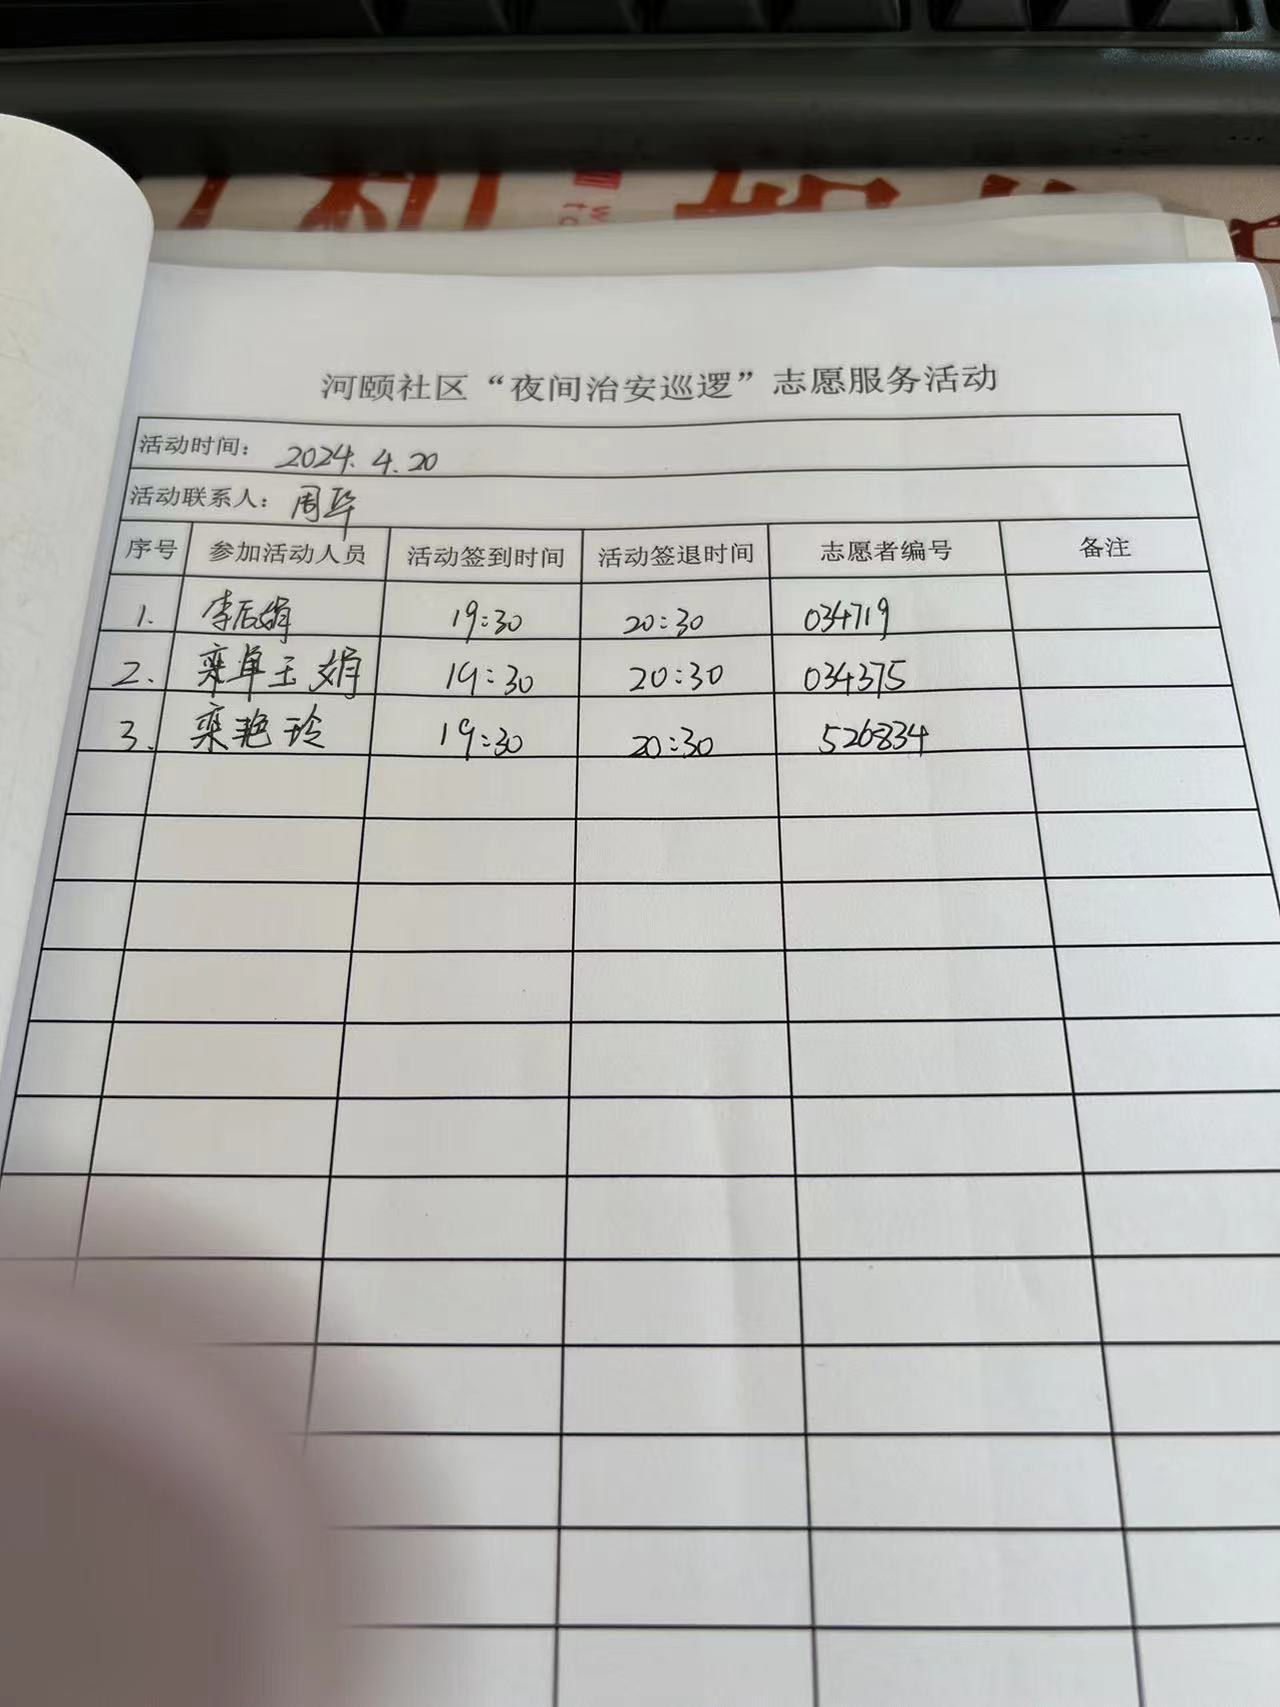 河颐社区“夜间治安巡逻”志愿服务活动
活动时间： 2024.4.20
活动联系人： 周华
序号 参加活动人员 活动签到时间 活动签退时间 志愿者编号 备注
1. 李后娟 19:30 20:30 034719
2. 栾卓玉娟 19:30 20:30 034375
3. 栾艳玲 19:30 20:30 526834